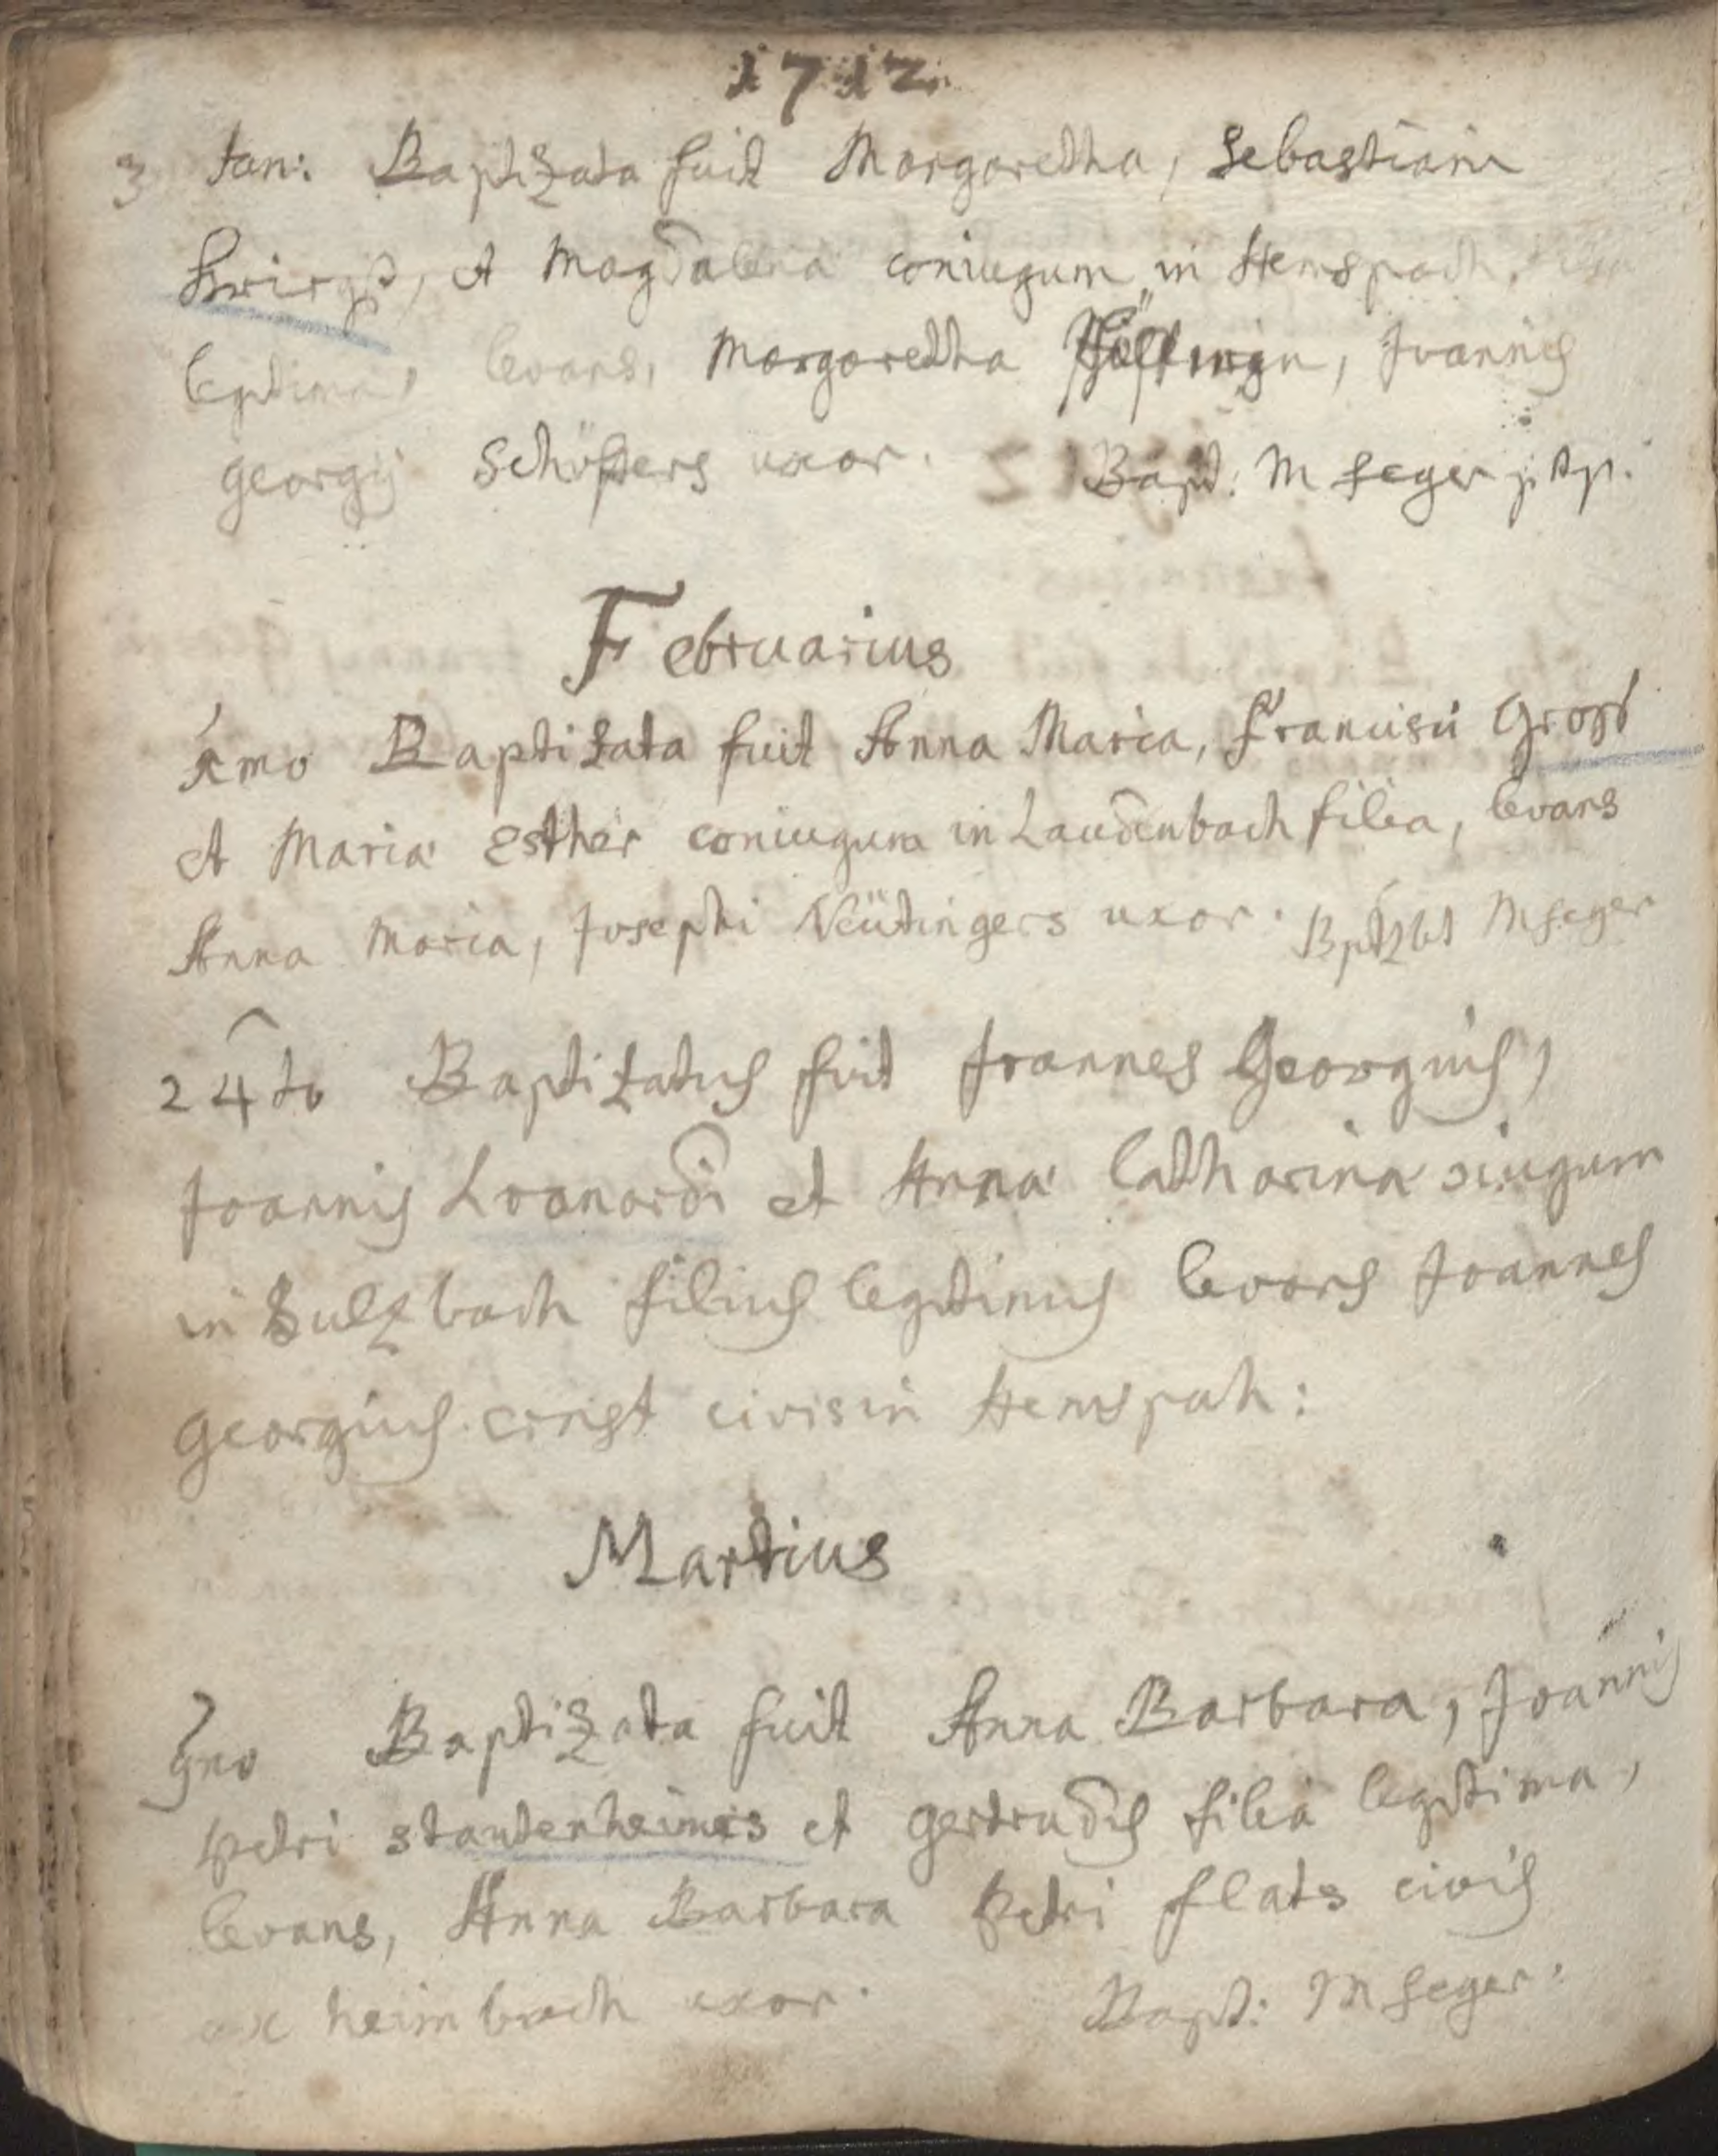 1712
3 Jan: Baptizata fuit Margaretha, Sebastiani
et Magdalena coniugum in Hemspach, filia
legitima, levans, Margaretha Joannis
georgij Schöffers uxor. Bapt: M seger p. t. p.
Februarius
1mo Baptizata fuit Anna Maria, Francisci Groß
et Maria Esther coniugum in Laudenbach filia, levans
Anna Maria, Josephi Neütingers uxor. Bptzbt M seger
24to Baptizatus fuit Joannes Georgius,
Joannis Leonardi et Anna Catharina giugum
in Sulzbach filius legitimus levans Joannes
georgius ernst civis in Hemspach:
Martius
Baptizata fuit Anna Barbara, Joannis
petri stautenheimers et gertrudis filia legitima,
levans, Anna Barbara petri flats civis
ex heimbach uxor. Bapt: M seger.